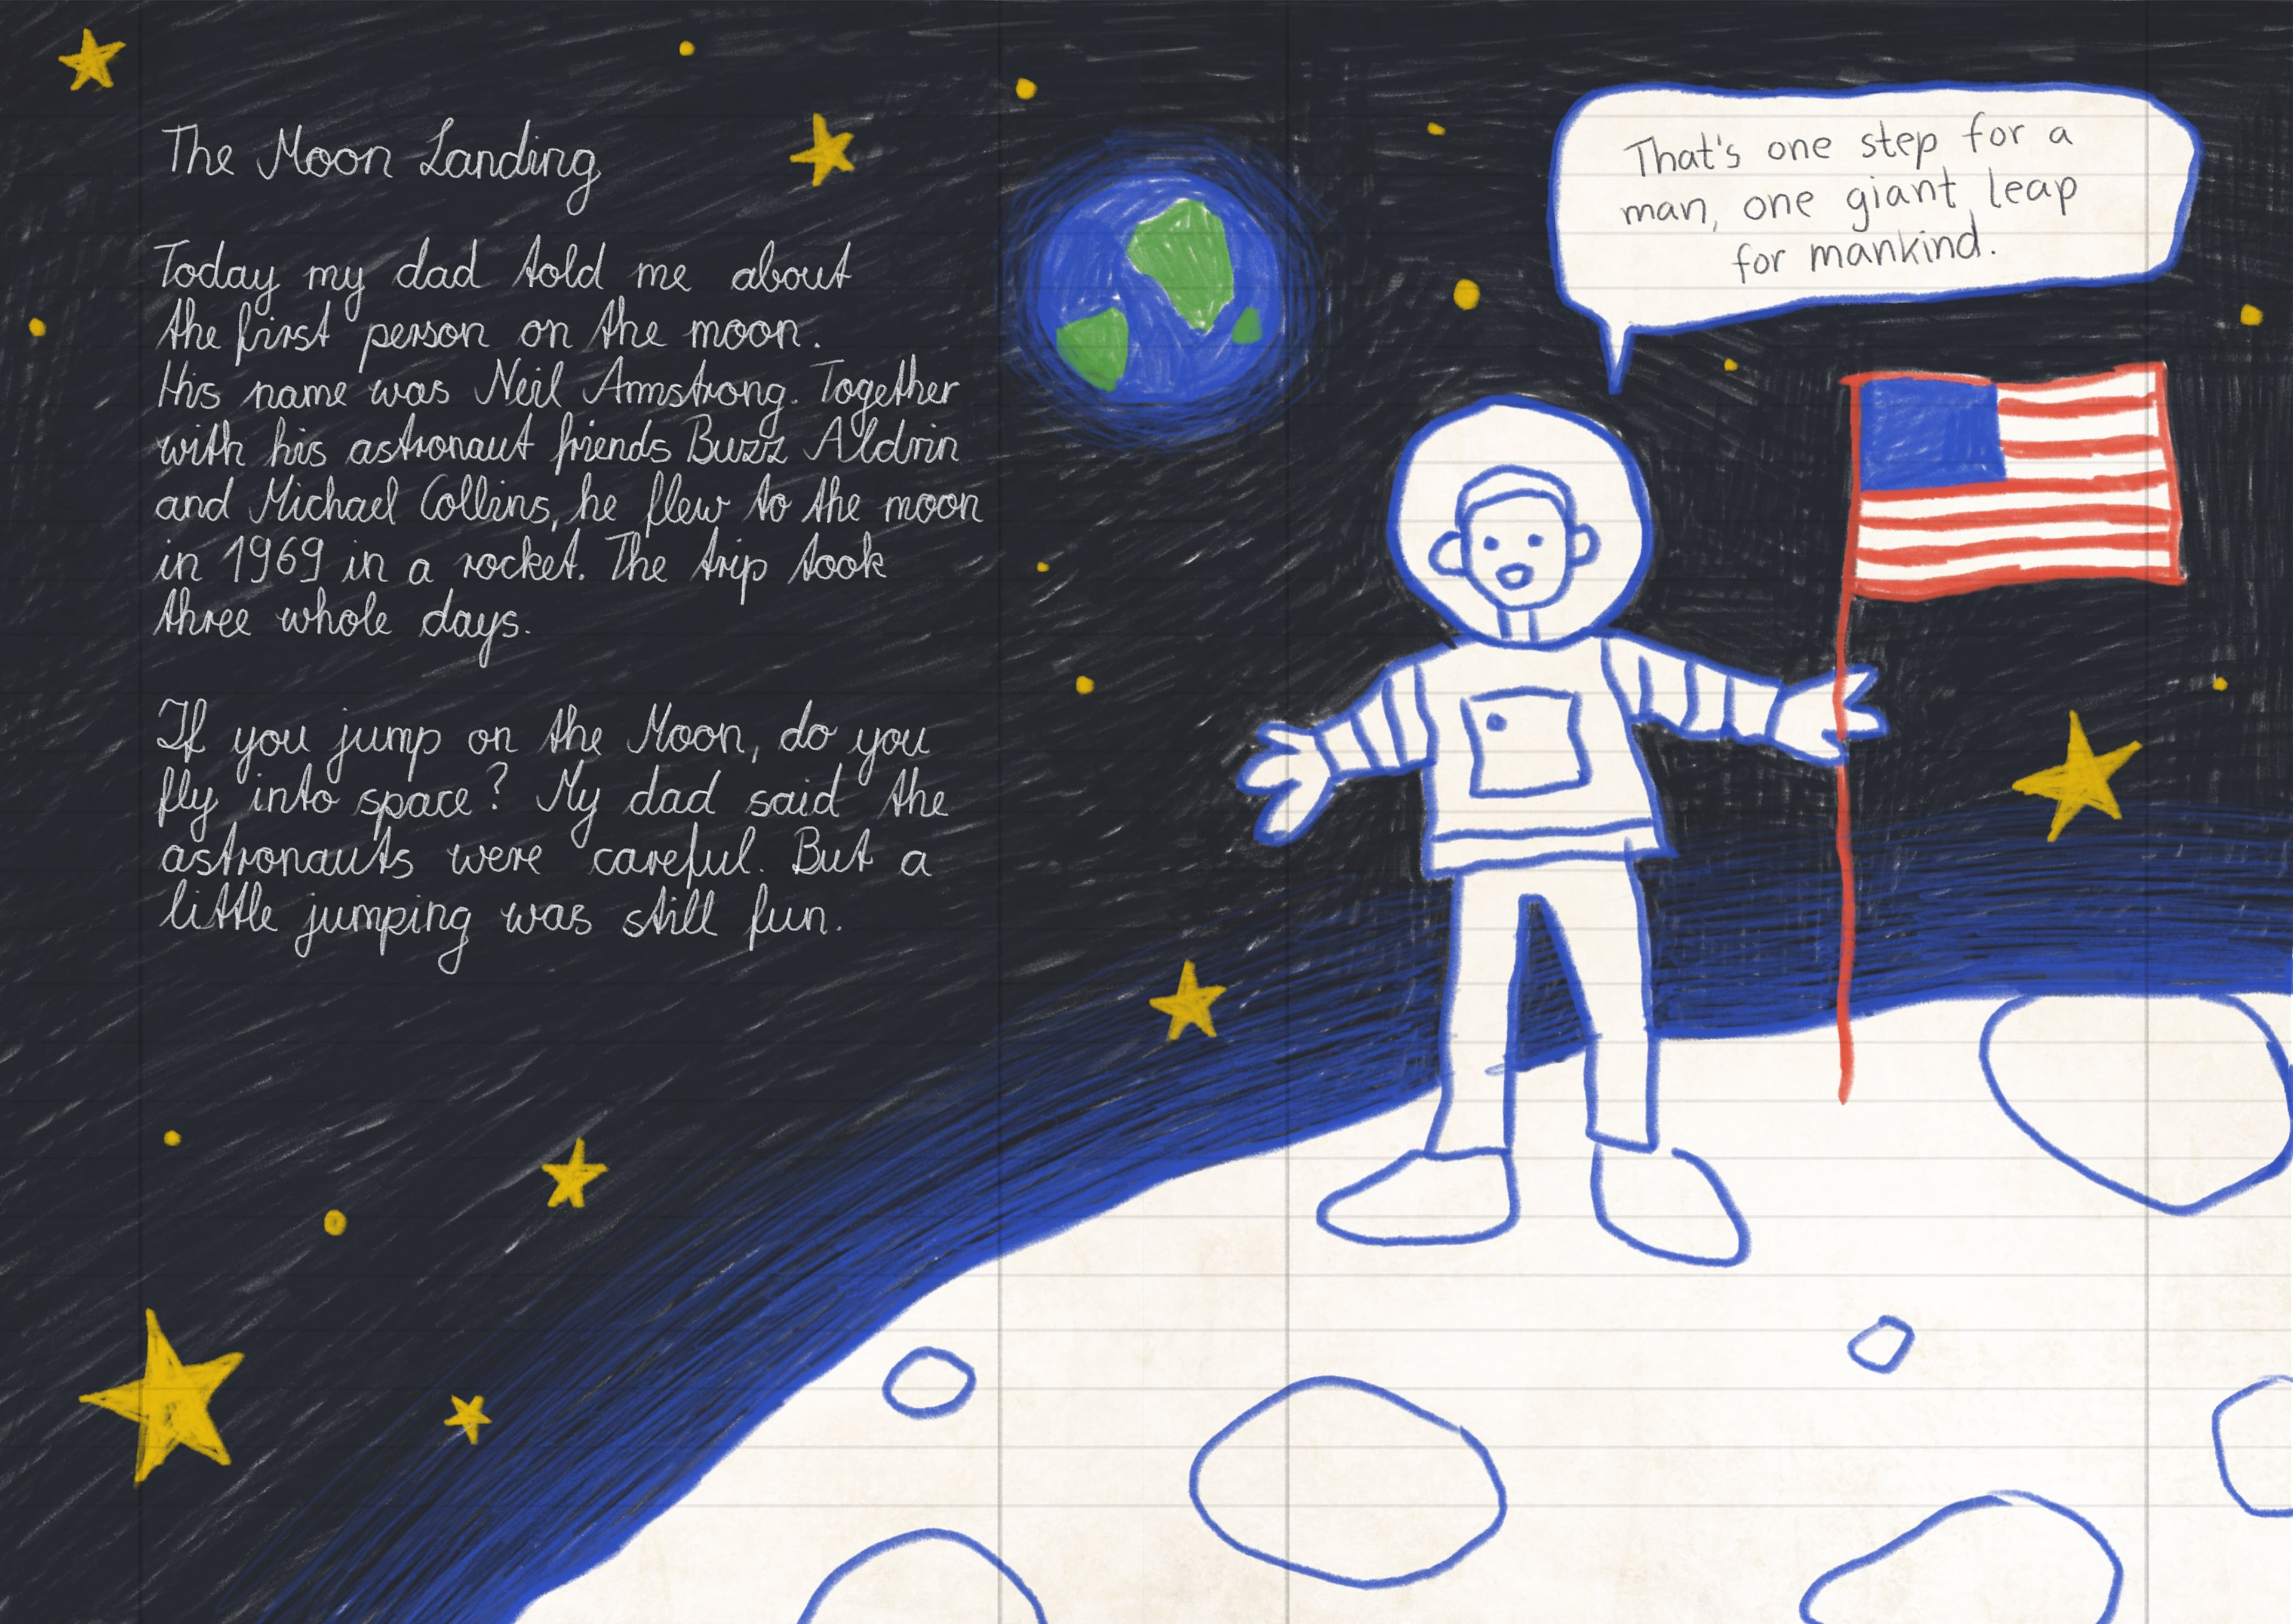 The Moon Landing
Today my dad told me about
the first person on the moon.
His name was Neil Armstrong. Together
with his astronaut friends Buzz Aldrin
and Michael Collins, he flew to the moon
in 1969 in a rocket. The trip took
three whole days.
If you jump on the Moon, do you
fly into space? My dad said the
astronauts were careful. But a
little jumping was still fun.
That's one step for a
man, one giant leap
for mankind.